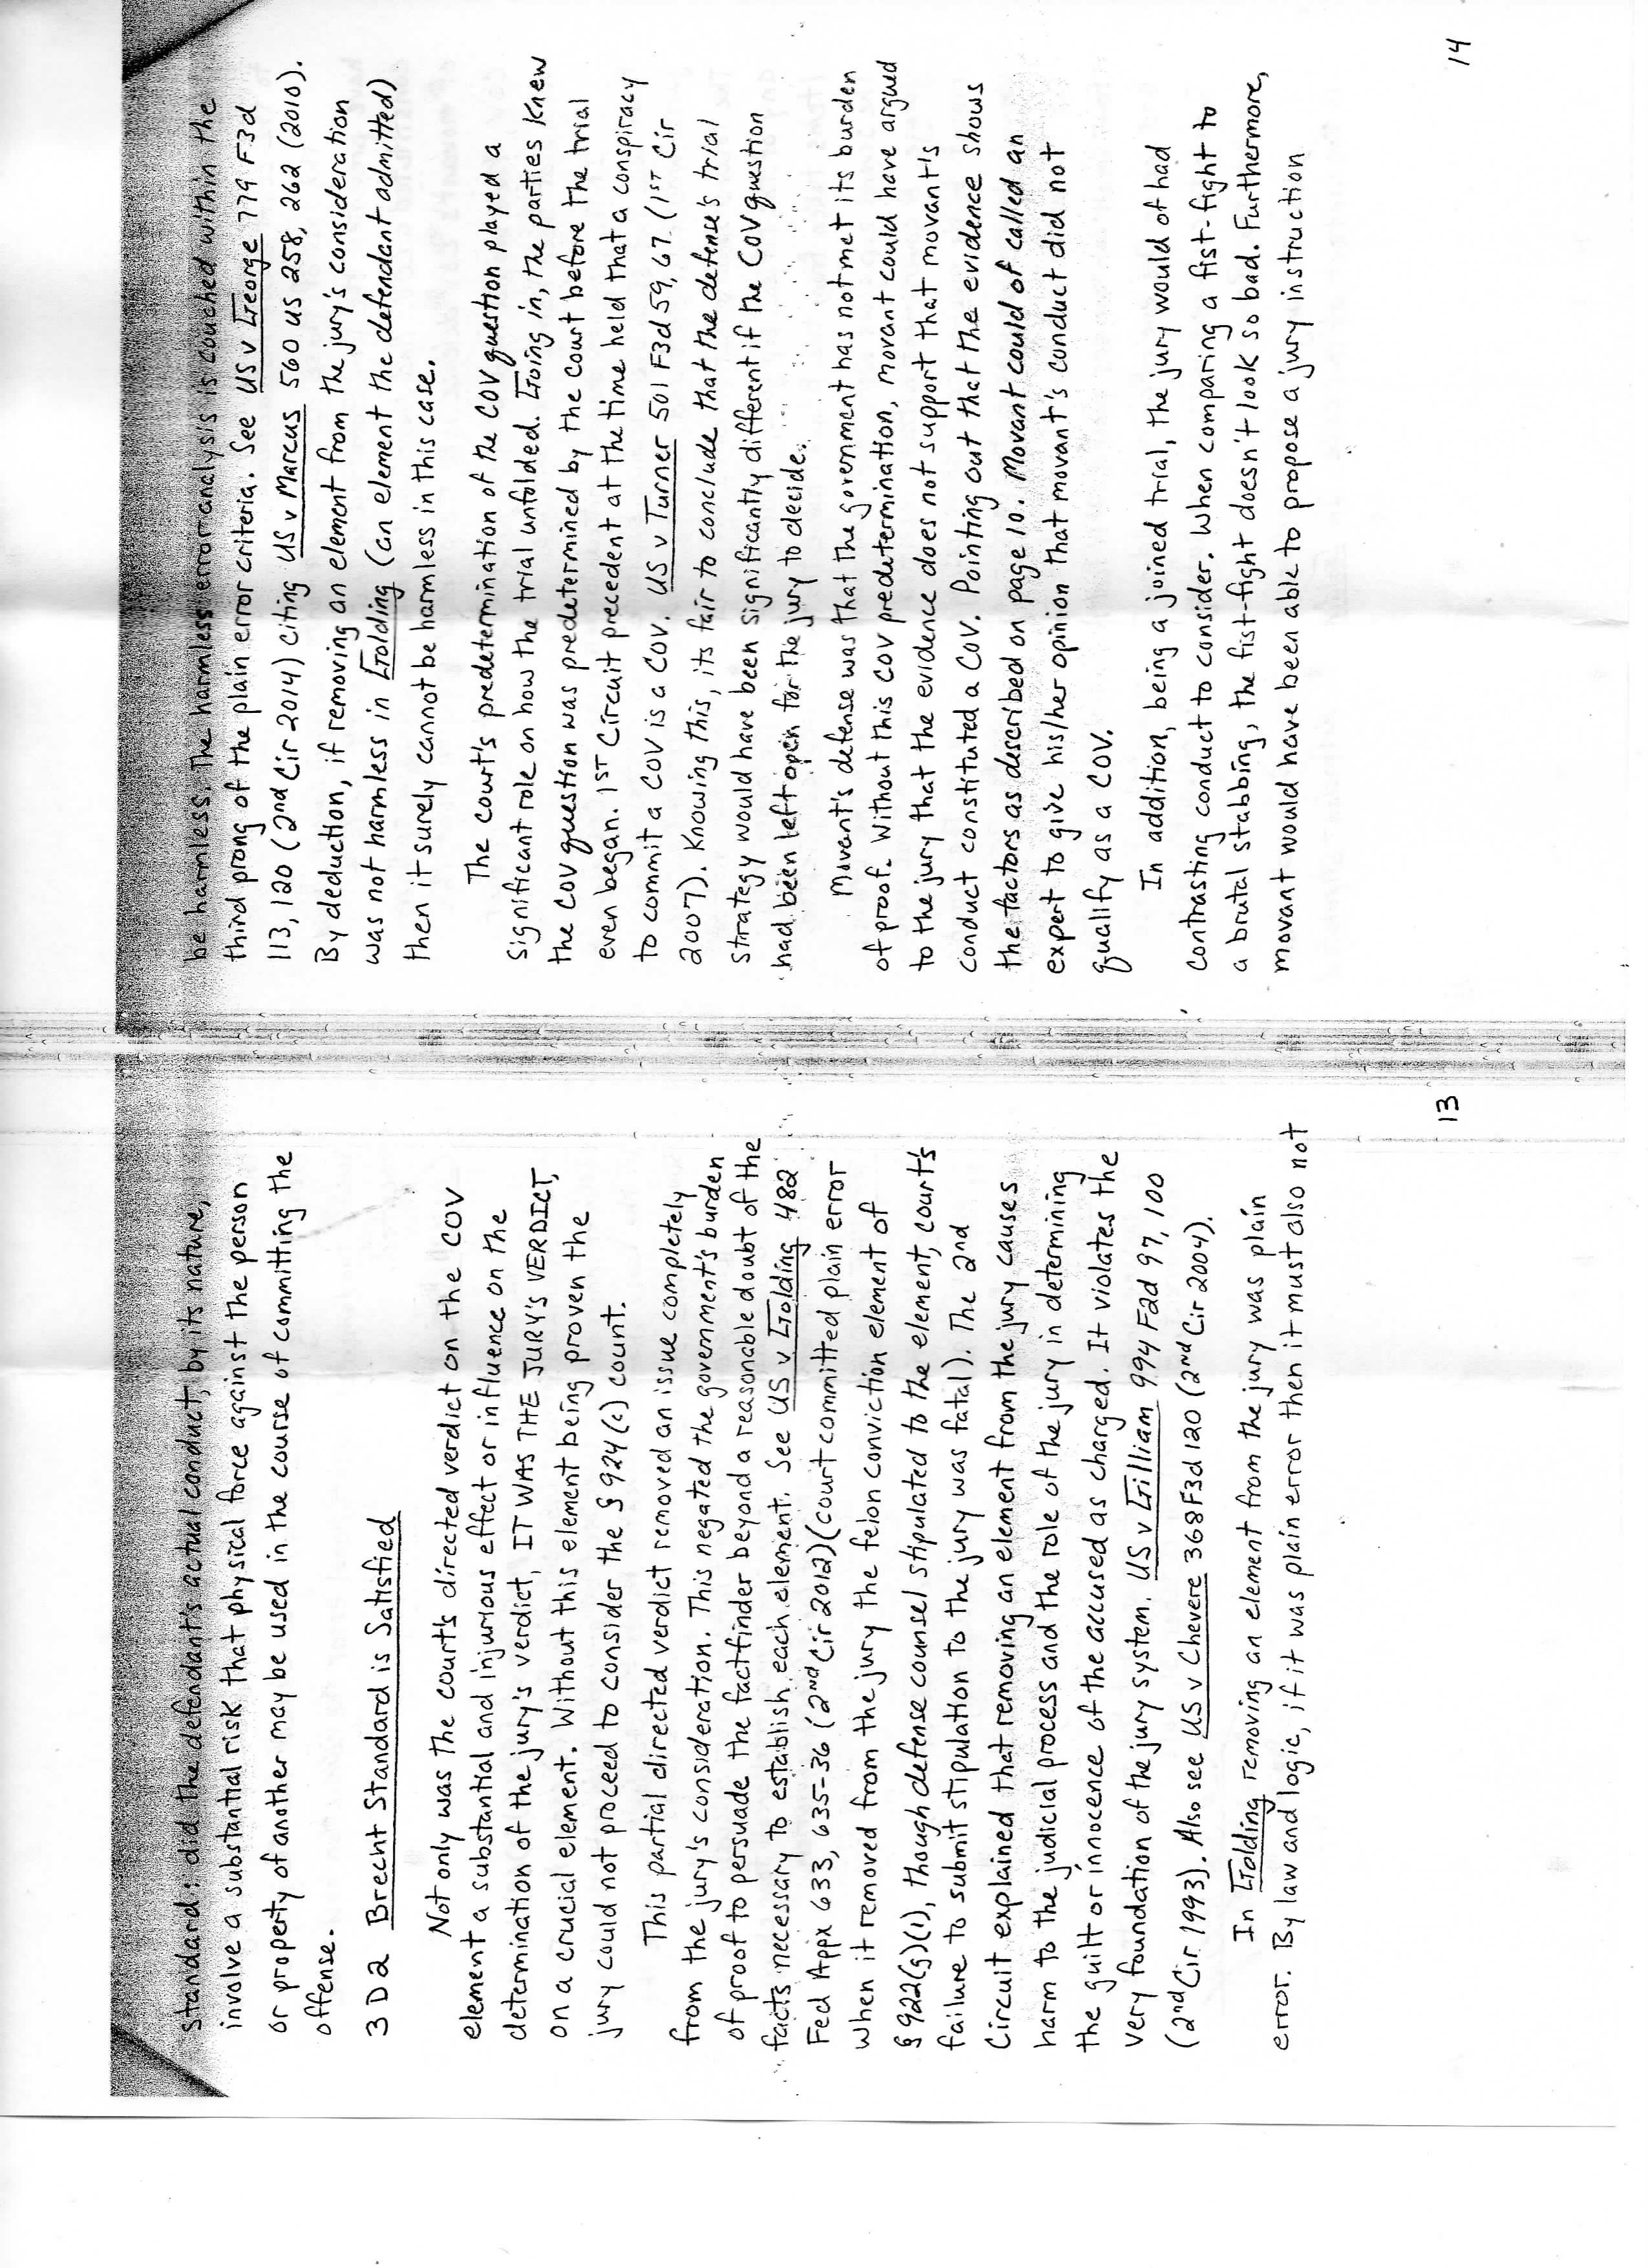 standard: did the defendant's actual conduct, by its nature,
involve a substantial risk that physical force against the person
or property of another may be used in the course of committing the
offense.
3 D 2 Brecht Standard is Satisfied
Not only was the court's directed verdict on the COV
element a substantial and injurious effect or influence on the
determination of the jury's verdict, IT WAS THE JURY'S VERDICT,
on a crucial element. Without this element being proven the
jury could not proceed to consider the § 924(c) count.
This partial directed verdict removed an issue completely
from the jury's consideration. This negated the government's burden
of proof to persuade the factfinder beyond a reasonable doubt of the
facts necessary to establish each element. See US v Golding 482
Fed Appx 633, 635-36 (2nd Cir 2012)(court committed plain error
when it removed from the jury the felon conviction element of
§ 922(g)(1), though defense counsel stipulated to the element, court's
failure to submit stipulation to the jury was fatal). The 2nd
Circuit explained that removing an element from the jury causes
harm to the judicial process and the role of the jury in determining
the guilt or innocence of the accused as charged. It violates the
very foundation of the jury system. US v Gilliam 994 F2d 97, 100
(2nd Cir 1993). Also see US v Chevere 368 F3d 120 (2nd Cir 2004).
In Golding removing an element from the jury was plain
error. By law and logic, if it was plain error then it must also not
13
be harmless. The harmless error analysis is couched within the
third prong of the plain error criteria. See US v George 779 F3d
113, 120 (2nd Cir 2014) citing US v Marcus 560 US 258, 262 (2010).
By deduction, if removing an element from the jury's consideration
was not harmless in Golding (an element the defendant admitted)
then it surely cannot be harmless in this case.
The court's predetermination of the COV question played a
significant role on how the trial unfolded. Going in, the parties knew
the COV question was predetermined by the court before the trial
even began. 1ST Circuit precedent at the time held that a conspiracy
to commit a COV is a COV. US v Turner 501 F3d 59, 67 (1ST Cir
2007). Knowing this, its fair to conclude that the defense's trial
strategy would have been significantly different if the COV question
had been left open for the jury to decide.
Movant's defense was that the government has not met its burden
of proof. Without this COV predetermination, movant could have argued
to the jury that the evidence does not support that movant's
conduct constituted a COV. Pointing out that the evidence shows
the factors as described on page 10. Movant could of called an
expert to give his/her opinion that movant's conduct did not
qualify as a COV.
In addition, being a joined trial, the jury would of had
contrasting conduct to consider. When comparing a fist-fight to
a brutal stabbing, the fist-fight doesn't look so bad. Furthermore,
movant would have been able to propose a jury instruction
14